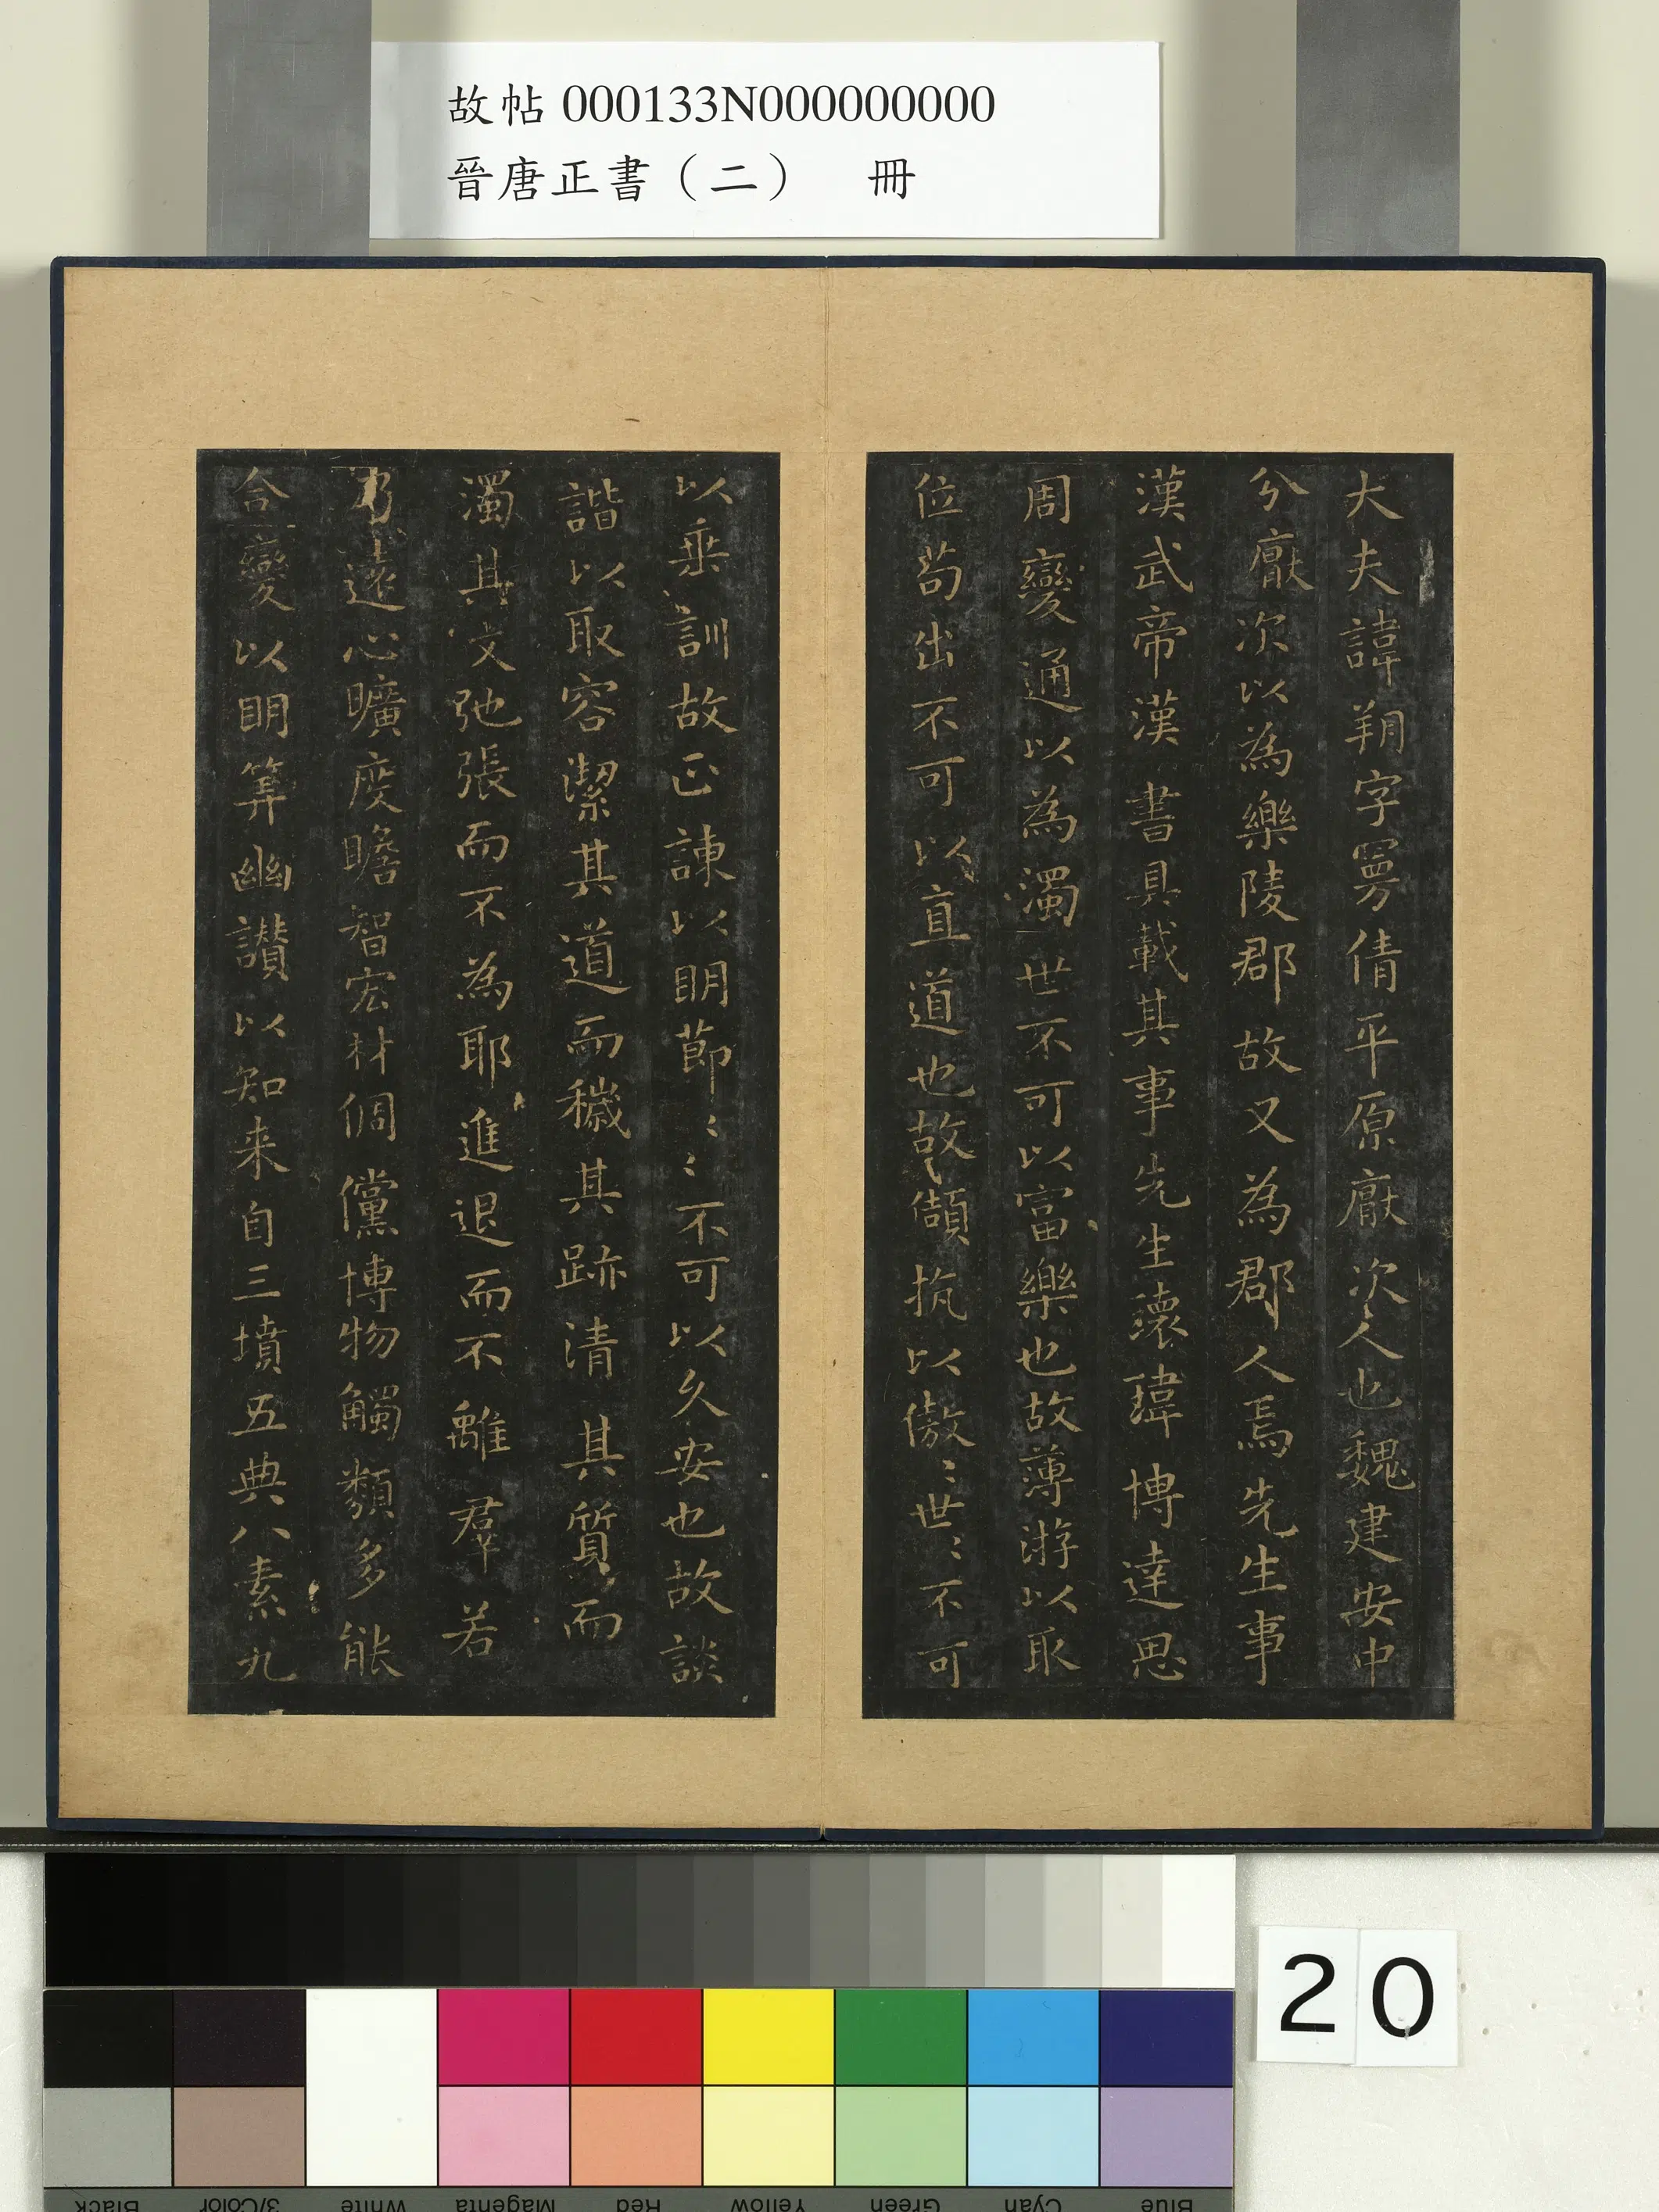 故帖 000133N000000000
晉唐正書（二）　冊
大夫諱朔字曼倩平原厭次人也魏建安中
分厭次以為樂陵郡故又為郡人焉先生事
漢武帝漢書具載其事先生瓌瑋博達思
周變通以為濁世不可以富樂也故薄游以取
位苟出不可以直道也故頡抗以傲〻世〻不可
以垂訓故正諫以明節〻〻不可以久安也故談
諧以取容潔其道而穢其跡清其質而
濁其文弛張而不為耶進退而不離羣若
乃遠心曠度瞻智宏材倜儻博物觸類多能
合變以明筭幽讚以知来自三墳五典八素九
20
Black 3/Color White Magenta Red Yellow Green Cyan Blue